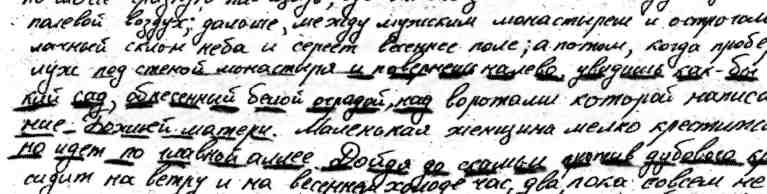 полевой воздух; дальше, между мужским монастырем и острогом
лачный склон неба и сереет весеннее поле; а потом, когда пробе
луж под стеной монастыря и повернешь налево, увидишь как-бы
кий сад, обнесенный белой оградой, над воротами которой написа
ние Божией матери. Маленькая женщина мелко крестится
но идет по главной аллее Дойдя до скамьи против дубового
сидит на ветру и на весеннем холоде час, два, пока совсем не